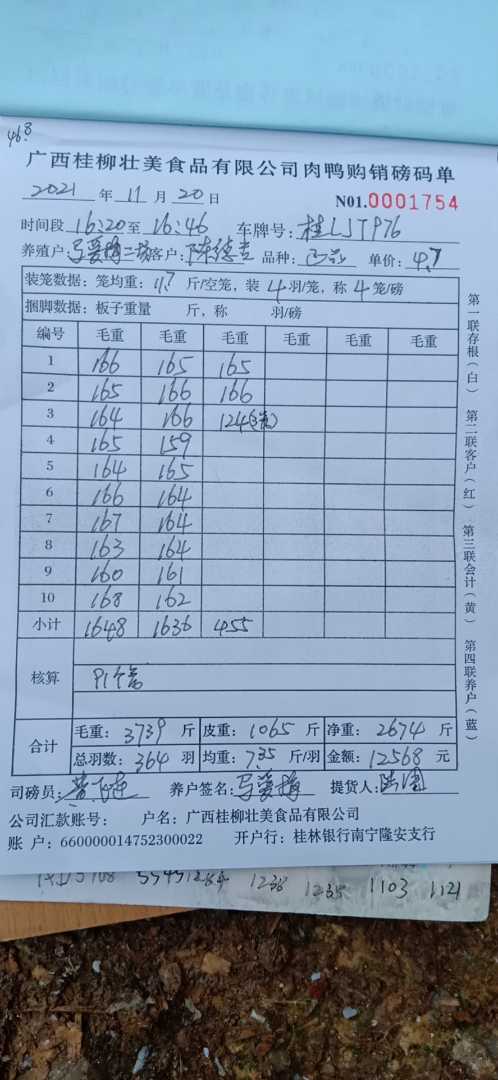 468
广西桂柳壮美食品有限公司肉鸭购销磅码单
2021 年 11 月 20 日 NO1.0001754
时间段 16:20 至 16:46 车牌号: 桂LJTP76
养殖户: 马爱梅二场 客户: 陈德吉 品种: 单价: 4.7
装笼数据: 笼均重: 11.7 斤/空笼, 装 4 羽/笼, 称 4 笼/磅
捆脚数据: 板子重量 斤, 称 羽/磅
编号 毛重 毛重 毛重 毛重 毛重 毛重
1 166 165 165
2 165 166 166
3 164 166 124
4 165 159
5 164 165
6 166 164
7 167 164
8 163 164
9 160 161
10 168 162
小计 1648 1636 455
核算 91个笼
合计 毛重: 3739 斤 皮重: 1065 斤 净重: 2674 斤
总羽数: 364 羽 均重: 7.35 斤/羽 金额: 12568 元
司磅员: 养户签名: 马爱梅 提货人:
公司汇款账号: 户名: 广西桂柳壮美食品有限公司
账 户: 660000014752300022 开户行: 桂林银行南宁隆安支行
第一联存根(白) 第二联客户(红) 第三联会计(黄) 第四联养户(蓝)
1238 1235 1103 1121